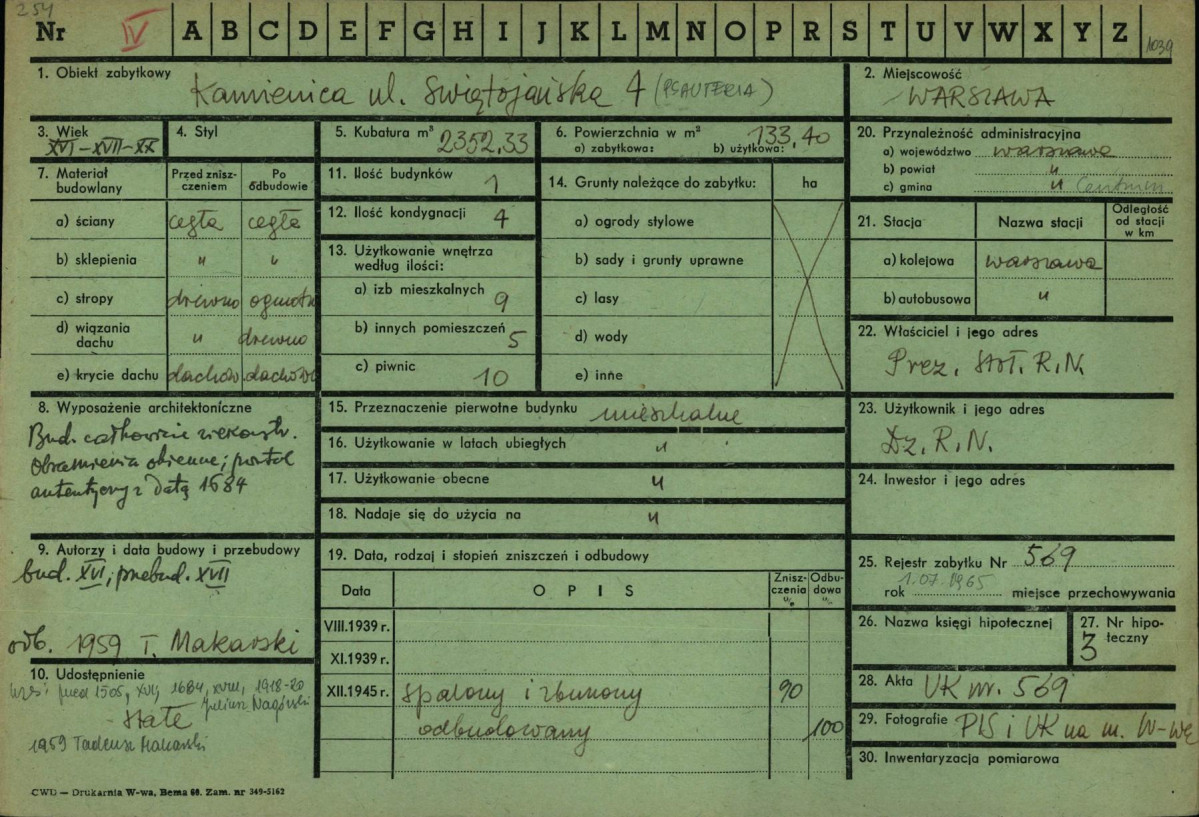 254
Nr IV A B C D E F G H I J K L M N O P R S T U V W X Y Z 1039
1. Obiekt zabytkowy
Kamienica ul. Świętojańska 4 (PSAUTERIA)
2. Miejscowość
WARSZAWA
3. Wiek
XVI-XVII-XX
4. Styl
5. Kubatura m³ 2352,33
6. Powierzchnia w m² 133,40
a) zabytkowa: b) użytkowa:
7. Materiał budowlany
Przed znisz-
czeniem
Po
odbudowie
a) ściany cegła cegła
b) sklepienia " "
c) stropy drewno ogniotr
d) wiązania
dachu " drewno
e) krycie dachu dachów. dachów
8. Wyposażenie architektoniczne
Bud. całkowicie rekonstr.
Obramienia okienne; portal
autentyczny z datą 1684
9. Autorzy i data budowy i przebudowy
bud. XVI; przebud. XVII
odb. 1959 T. Makarski
10. Udostępnienie
przed 1505, XVI, 1684, XVIII, 1918-20
Juliusz Nagórski
stałe
1959 Tadeusz Makarski
11. Ilość budynków 1
12. Ilość kondygnacji 4
13. Użytkowanie wnętrza
według ilości:
a) izb mieszkalnych 9
b) innych pomieszczeń 5
c) piwnic 10
14. Grunty należące do zabytku: ha
a) ogrody stylowe
b) sady i grunty uprawne
c) lasy
d) wody
e) inne
15. Przeznaczenie pierwotne budynku mieszkalne
16. Użytkowanie w latach ubiegłych "
17. Użytkowanie obecne "
18. Nadaje się do użycia na "
19. Data, rodzaj i stopień zniszczeń i odbudowy
Data OPIS Znisz-
czenia
w %
Odbu-
dowa
w %
VIII.1939 r.
XI.1939 r.
XII.1945 r. spalony i zburzony 90
odbudowany 100
20. Przynależność administracyjna
a) województwo warszawa
b) powiat "
c) gmina " Centrum
21. Stacja Nazwa stacji Odległość
od stacji
w km
a) kolejowa warszawa
b) autobusowa "
22. Właściciel i jego adres
Prez. Stoł. R.N.
23. Użytkownik i jego adres
Dz. R.N.
24. Inwestor i jego adres
25. Rejestr zabytku Nr 569
rok 1.07.1965 miejsce przechowywania
26. Nazwa księgi hipotecznej
27. Nr hipo-
teczny
3
28. Akta UK nr. 569
29. Fotografie PIS i UK na m. W-wę
30. Inwentaryzacja pomiarowa
CWD — Drukarnia W-wa, Bema 60. Zam. nr 349-5162